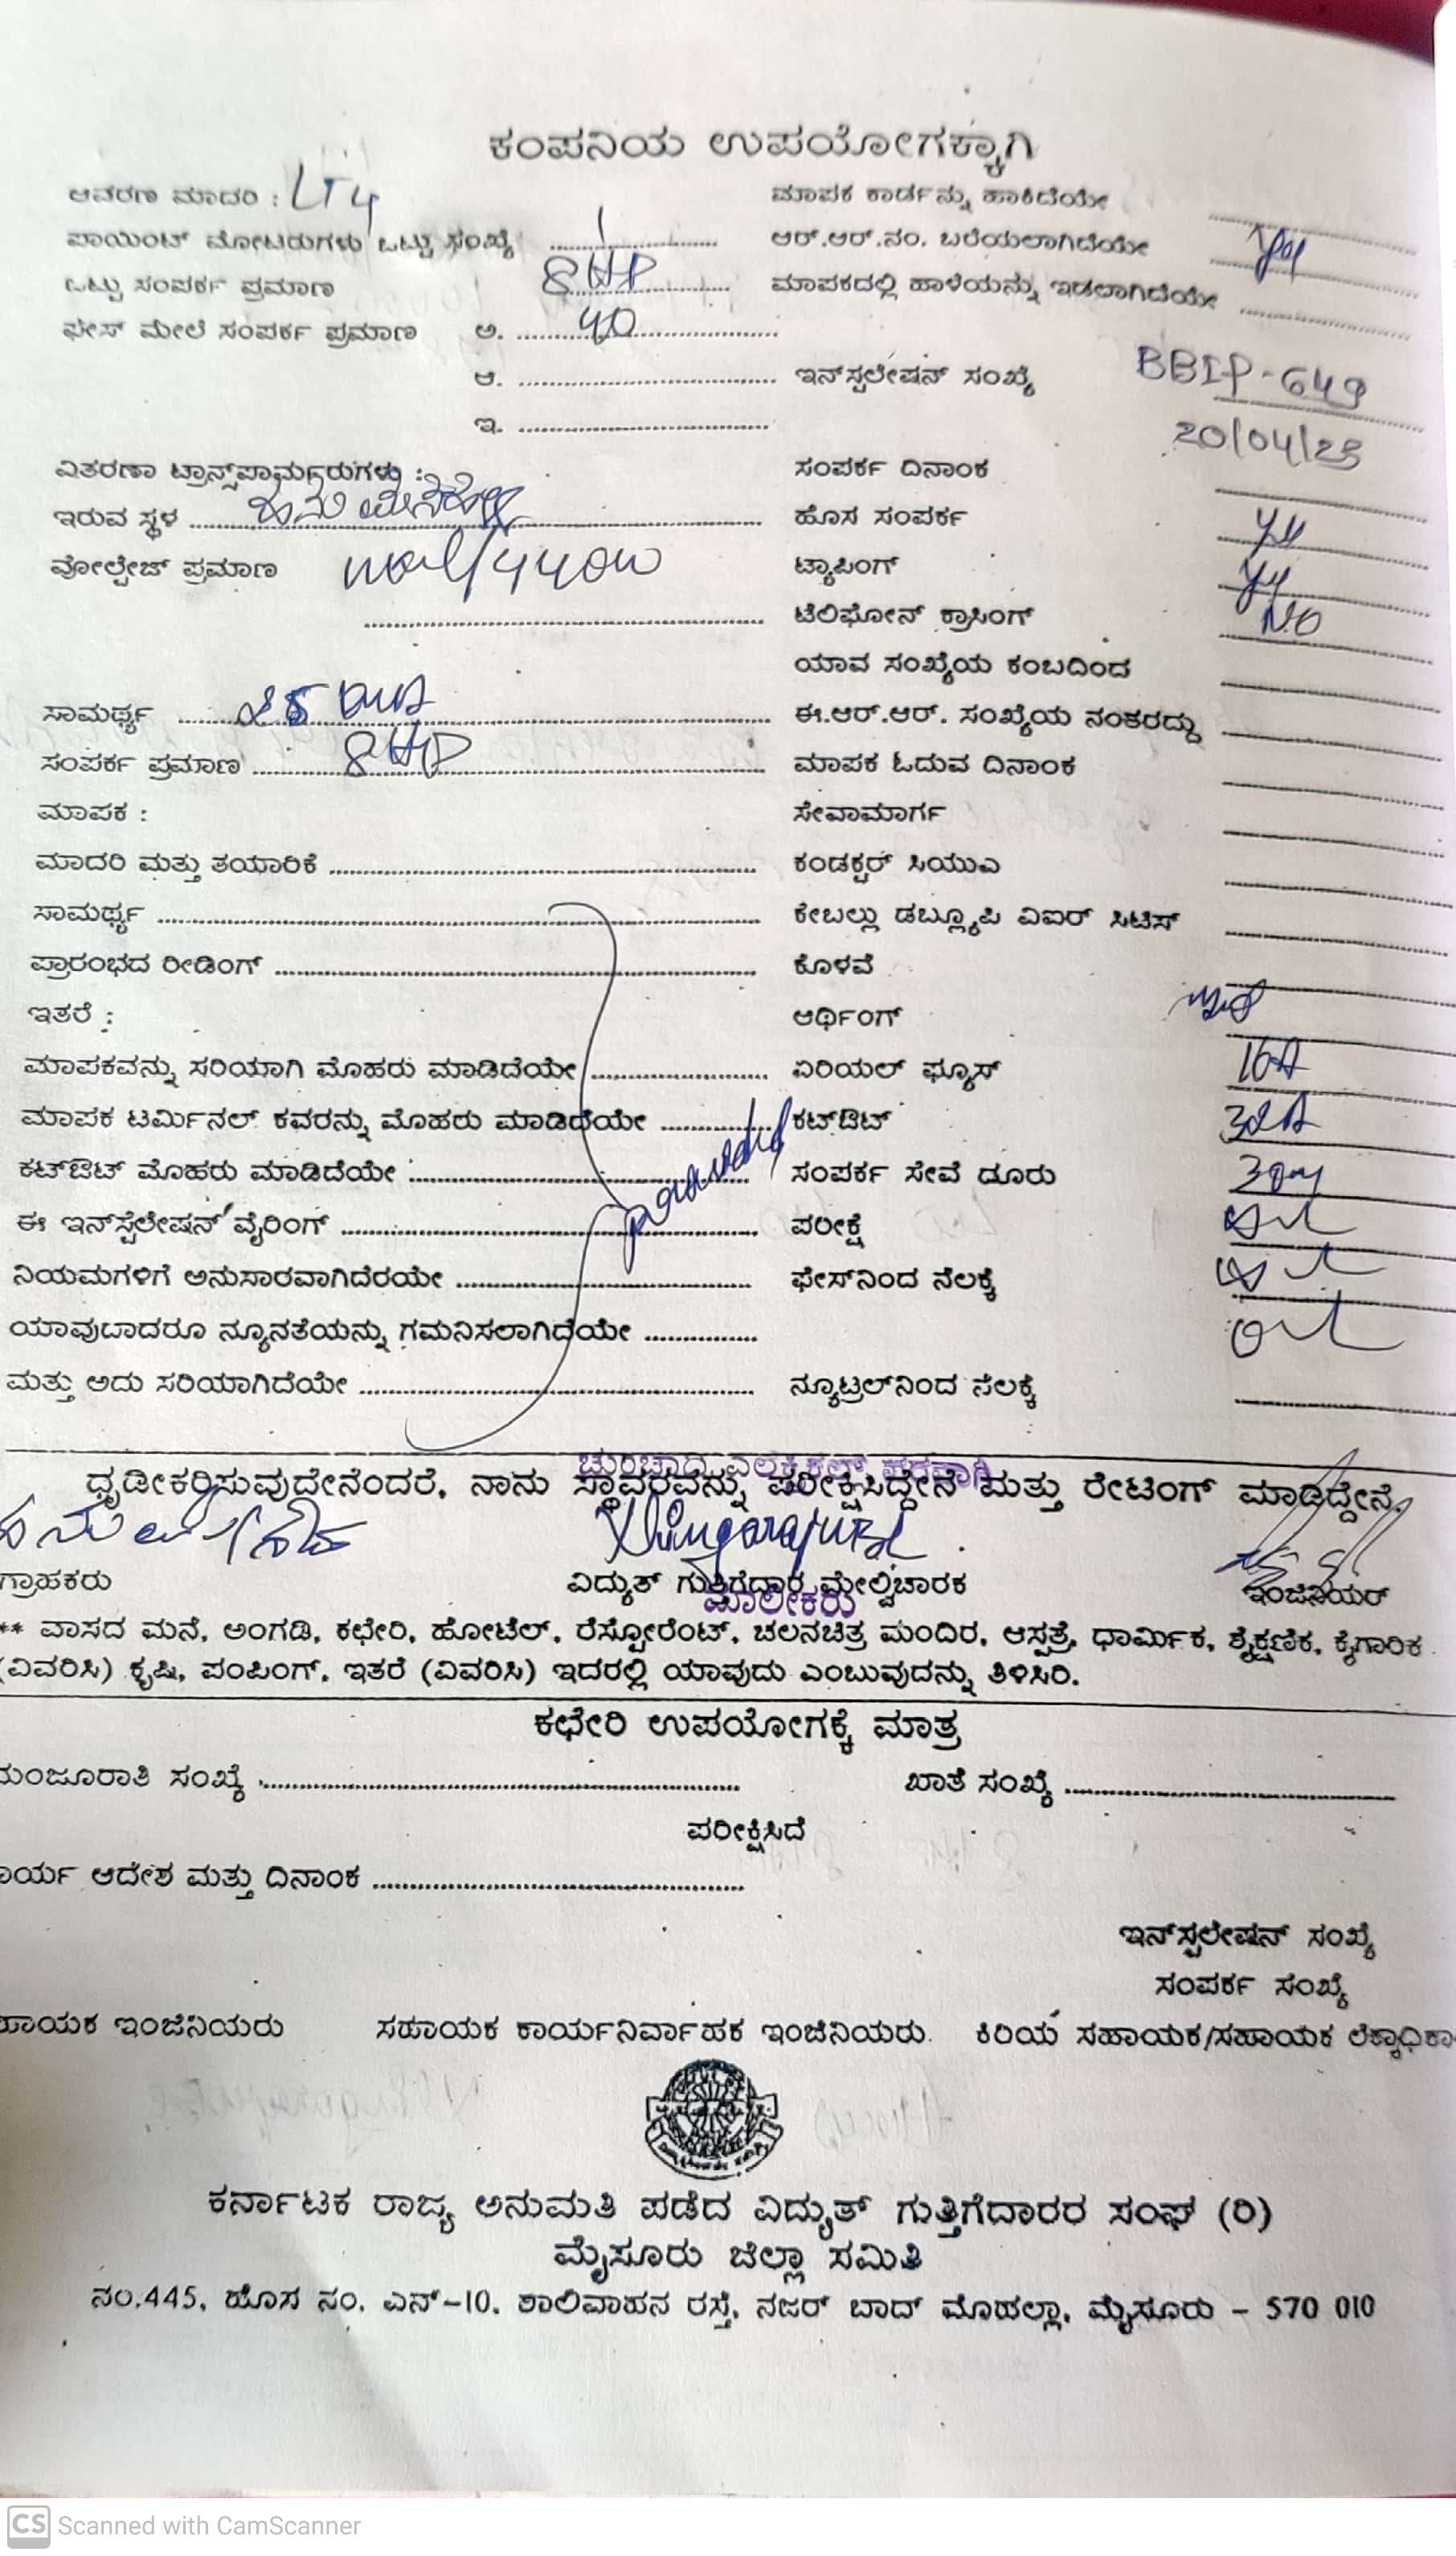 ಕಂಪನಿಯ ಉಪಯೋಗಕ್ಕಾಗಿ
ಆವರಣ ಮಾದರಿ : LT4 ಮಾಪಕ ಕಾರ್ಡನ್ನು ಹಾಕಿದೆಯೇ
ಪಾಯಿಂಟ್ ಮೋಟರುಗಳು ಒಟ್ಟು ಸಂಖ್ಯೆ 1 ಆರ್.ಆರ್.ನಂ. ಬರೆಯಲಾಗಿದೆಯೇ
ಒಟ್ಟು ಸಂಪರ್ಕ ಪ್ರಮಾಣ 8HP ಮಾಪಕದಲ್ಲಿ ಹಾಳೆಯನ್ನು ಇಡಲಾಗಿದೆಯೇ
ಫೇಸ್ ಮೇಲೆ ಸಂಪರ್ಕ ಪ್ರಮಾಣ ಅ. 40
ಆ. ಇನ್‌ಸ್ಪಲೇಷನ್ ಸಂಖ್ಯೆ BBIP-649
ಇ. 20/04/23
ವಿತರಣಾ ಟ್ರಾನ್ಸ್‌ಪಾರ್ಮರುಗಳು : ಸಂಪರ್ಕ ದಿನಾಂಕ
ಇರುವ ಸ್ಥಳ ಹೊಸ ಸಂಪರ್ಕ
ವೋಲ್ಟೇಜ್ ಪ್ರಮಾಣ ಟ್ಯಾಪಿಂಗ್
ಟೆಲಿಫೋನ್ ಕ್ರಾಸಿಂಗ್ NO
ಯಾವ ಸಂಖ್ಯೆಯ ಕಂಬದಿಂದ
ಸಾಮರ್ಥ್ಯ ಈ.ಆರ್.ಆರ್. ಸಂಖ್ಯೆಯ ನಂತರದ್ದು
ಸಂಪರ್ಕ ಪ್ರಮಾಣ 8HP ಮಾಪಕ ಓದುವ ದಿನಾಂಕ
ಮಾಪಕ : ಸೇವಾಮಾರ್ಗ
ಮಾದರಿ ಮತ್ತು ತಯಾರಿಕೆ ಕಂಡಕ್ಟರ್ ಸಿಯುಎ
ಸಾಮರ್ಥ್ಯ ಕೇಬಲ್ಲು ಡಬ್ಲ್ಯೂಪಿ ವಿಐರ್ ಸಿಟಿಸ್
ಪ್ರಾರಂಭದ ರೀಡಿಂಗ್ ಕೊಳವೆ
ಇತರೆ : ಆರ್ಥಿಂಗ್
ಮಾಪಕವನ್ನು ಸರಿಯಾಗಿ ಮೊಹರು ಮಾಡಿದೆಯೇ ಏರಿಯಲ್ ಫ್ಯೂಸ್ 16A
ಮಾಪಕ ಟರ್ಮಿನಲ್ ಕವರನ್ನು ಮೊಹರು ಮಾಡಿದೆಯೇ ಕಟ್‌ಔಟ್ 32A
ಕಟ್‌ಔಟ್ ಮೊಹರು ಮಾಡಿದೆಯೇ ಸಂಪರ್ಕ ಸೇವೆ ದೂರು
ಈ ಇನ್‌ಸ್ಟೆಲೇಷನ್ ವೈರಿಂಗ್ ಪರೀಕ್ಷೆ
ನಿಯಮಗಳಿಗೆ ಅನುಸಾರವಾಗಿದೆರಯೇ ಫೇಸ್‌ನಿಂದ ನೆಲಕ್ಕೆ
ಯಾವುದಾದರೂ ನ್ಯೂನತೆಯನ್ನು ಗಮನಿಸಲಾಗಿದೆಯೇ
ಮತ್ತು ಅದು ಸರಿಯಾಗಿದೆಯೇ ನ್ಯೂಟ್ರಲ್‌ನಿಂದ ನೆಲಕ್ಕೆ
ಧೃಡೀಕರಿಸುವುದೇನೆಂದರೆ, ನಾನು ಸ್ಥಾವರವನ್ನು ಪರೀಕ್ಷಿಸಿದ್ದೇನೆ ಮತ್ತು ರೇಟಿಂಗ್ ಮಾಡಿದ್ದೇನೆ.
ಗ್ರಾಹಕರು ವಿದ್ಯುತ್ ಗುತ್ತಿಗೆದಾರ ಮೇಲ್ವಿಚಾರಕ ಇಂಜಿನಿಯರ್
ಮಾಲೀಕರು
** ವಾಸದ ಮನೆ, ಅಂಗಡಿ, ಕಛೇರಿ, ಹೋಟೆಲ್, ರೆಸ್ಟೋರೆಂಟ್, ಚಲನಚಿತ್ರ ಮಂದಿರ, ಆಸ್ಪತ್ರೆ, ಧಾರ್ಮಿಕ, ಶೈಕ್ಷಣಿಕ, ಕೈಗಾರಿಕ
(ವಿವರಿಸಿ) ಕೃಷಿ, ಪಂಪಿಂಗ್, ಇತರೆ (ವಿವರಿಸಿ) ಇದರಲ್ಲಿ ಯಾವುದು ಎಂಬುವುದನ್ನು ತಿಳಿಸಿರಿ.
ಕಛೇರಿ ಉಪಯೋಗಕ್ಕೆ ಮಾತ್ರ
ಮಂಜೂರಾತಿ ಸಂಖ್ಯೆ ಖಾತೆ ಸಂಖ್ಯೆ
ಪರೀಕ್ಷಿಸಿದೆ
ಕಾರ್ಯ ಆದೇಶ ಮತ್ತು ದಿನಾಂಕ
ಇನ್‌ಸ್ಪಲೇಷನ್ ಸಂಖ್ಯೆ
ಸಂಪರ್ಕ ಸಂಖ್ಯೆ
ಹಾಯಕ ಇಂಜಿನಿಯರು ಸಹಾಯಕ ಕಾರ್ಯನಿರ್ವಾಹಕ ಇಂಜಿನಿಯರು. ಕಿರಿಯ ಸಹಾಯಕ/ಸಹಾಯಕ ಲೆಕ್ಕಾಧಿಕಾ
ಕರ್ನಾಟಕ ರಾಜ್ಯ ಅನುಮತಿ ಪಡೆದ ವಿದ್ಯುತ್ ಗುತ್ತಿಗೆದಾರರ ಸಂಘ (ರಿ)
ಮೈಸೂರು ಜಿಲ್ಲಾ ಸಮಿತಿ
ನಂ.445, ಹೊಸ ನಂ. ಎನ್-10, ಶಾಲಿವಾಹನ ರಸ್ತೆ, ನಜರ್ ಬಾದ್ ಮೊಹಲ್ಲಾ, ಮೈಸೂರು - 570 010
CS Scanned with CamScanner